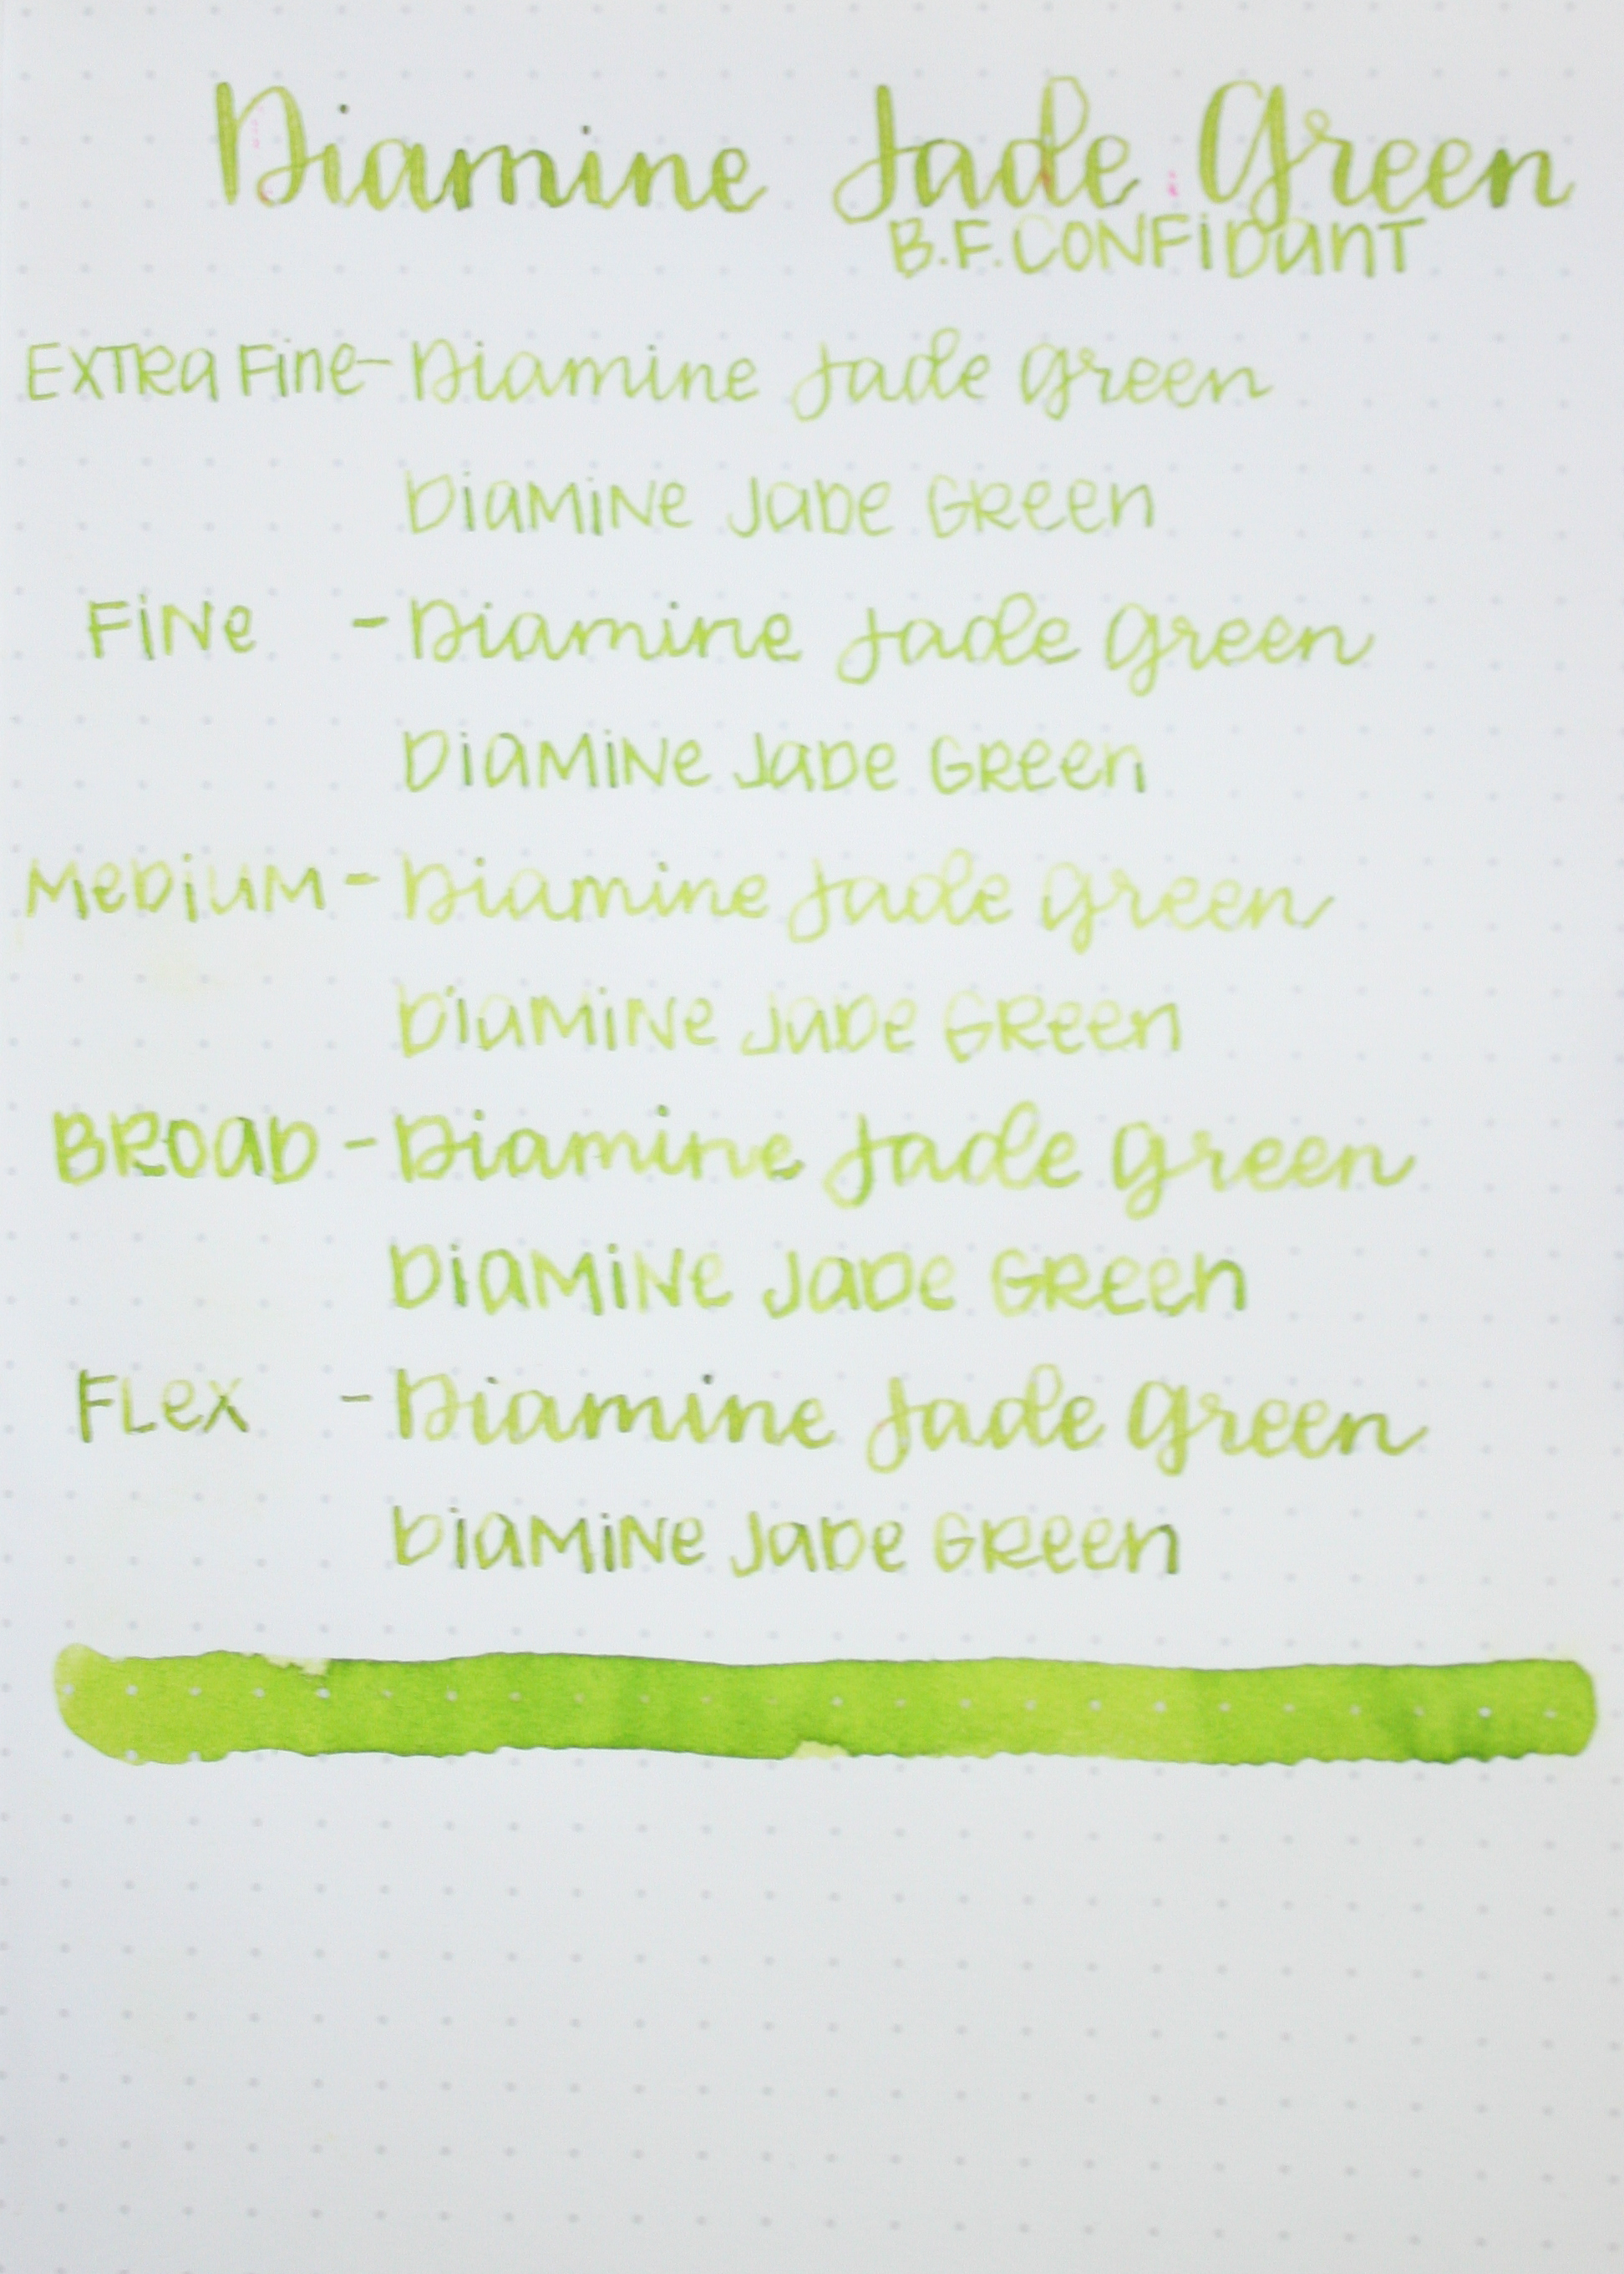 Diamine Jade Green
B.F. CONFIDANT
EXTRA FINE - Diamine Jade Green
DIAMINE JADE GREEN
FINE - Diamine Jade Green
DIAMINE JADE GREEN
MEDIUM - Diamine Jade Green
DIAMINE JADE GREEN
BROAD - Diamine Jade Green
DIAMINE JADE GREEN
FLEX - Diamine Jade Green
DIAMINE JADE GREEN